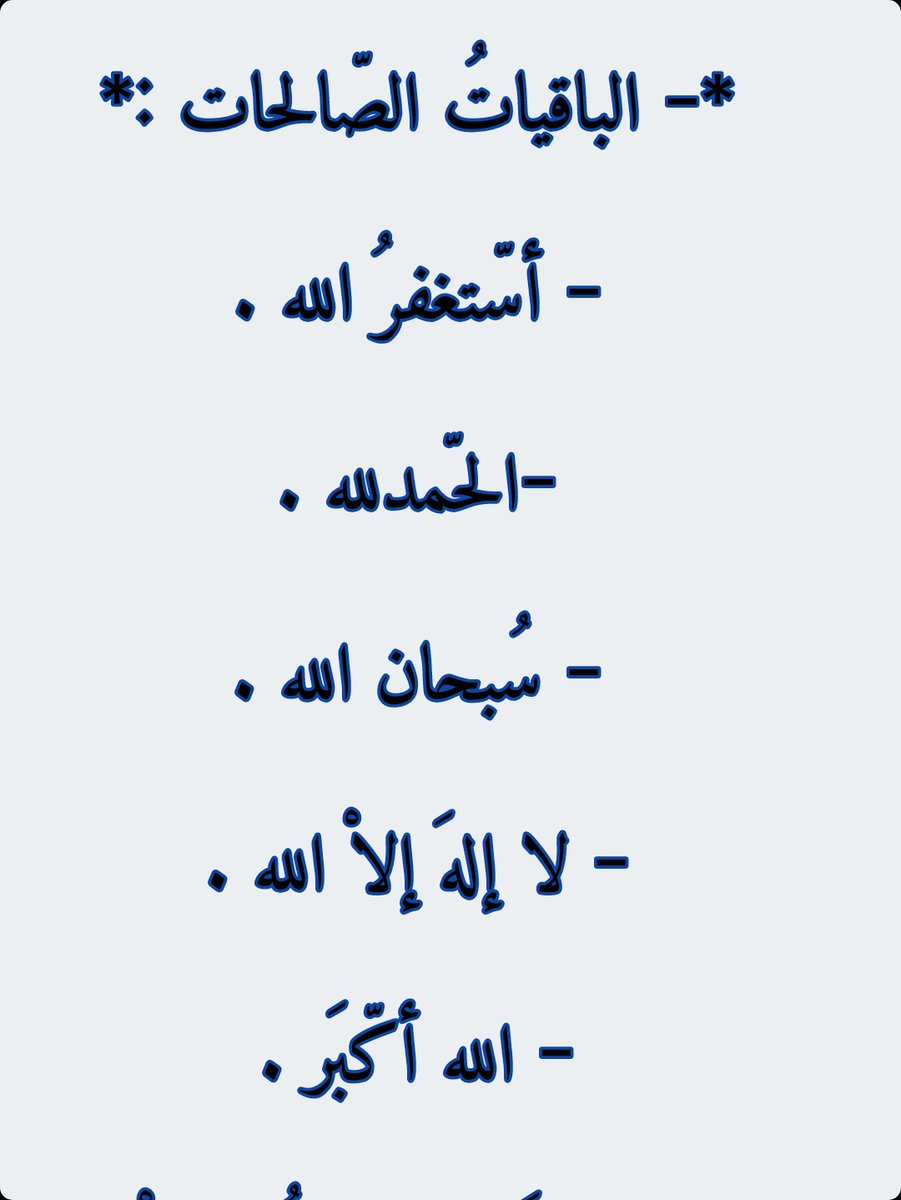 *- الباقياتُ الصّالحات :*
- أسّتغفرُ الله .
-الحّمدلله .
- سُبحان الله .
- لا إلهَ إلاْ الله .
- الله أكّبَر .